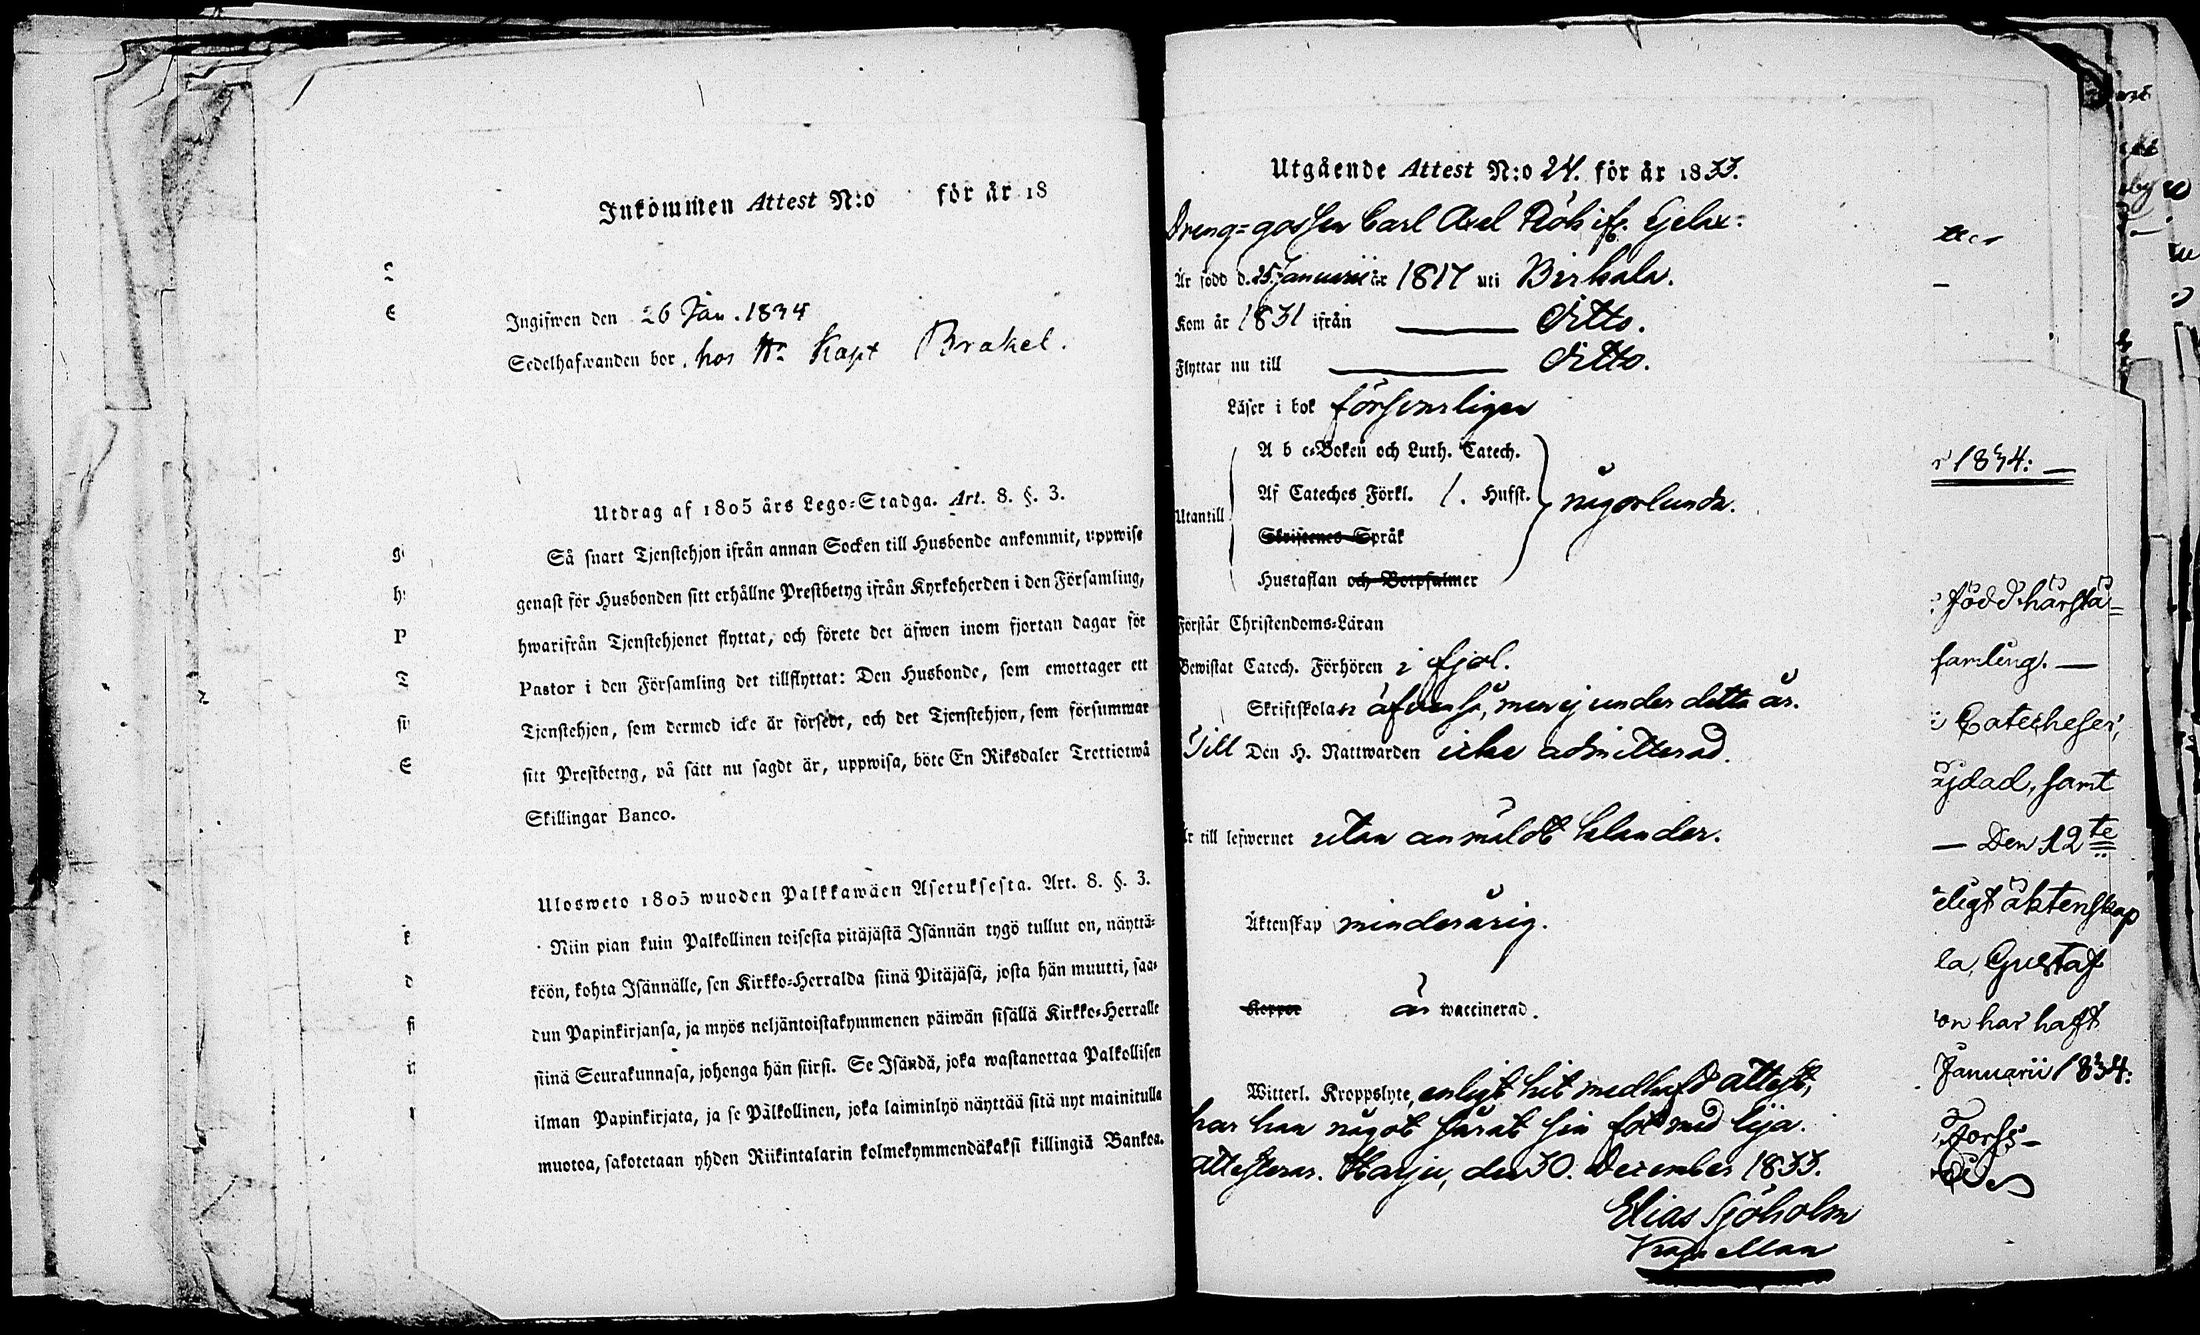 Inkommen Attest N:o för år 18
Ingifwen den 26 Jan. 1834
Sedelhafwanden bor, hos Hr Kapt Brakel.
Utdrag af 1805 års Lego-Stadga. Art. 8. §. 3.
Så snart Tjenstehjon ifrån annan Socken till Husbonde ankommit, uppwise
genast för Husbonden sitt erhållne Prestbetyg ifrån Kyrkoherden i den Församling,
hwarifrån Tjenstehjonet flyttat, och förete det äfwen inom fjortan dagar för
Pastor i den Församling det tillflyttat: Den Husbonde, som emottager ett
Tjenstehjon, som dermed icke är försedt, och det Tjenstehjon, som försummar
sitt Prestbetyg, på sätt nu sagdt är, uppwisa, böte En Riksdaler Trettiotwå
Skillingar Banco.
Ulosweto 1805 wuoden Palkkawäen Asetuksesta. Art. 8. §. 3.
Niin pian kuin Palkollinen toisesta pitäjästä Isännän tygö tullut on, näyttä-
köön, kohta Isännälle, sen Kirkko-Herralda siinä Pitäjäsä, josta hän muutti, saa-
dun Papinkirjansa, ja myös neljäntoistakymmenen päiwän sisällä Kirkko-Herralle
siinä Seurakunnasa, johonga hän siirsi. Se Isändä, joka wastanottaa Palkollisen
ilman Papinkirjata, ja se Palkollinen, joka laiminlyö näyttää sitä nyt mainitulla
muotoa, sakotetaan yhden Riikintalarin kolmekymmendäkaksi killingiä Bankoa.
Utgående Attest N:o 24. för år 1833.
Dreng-gossen Carl Axel
Är född d. 25. Januarii år 1817 uti Birkala.
Kom år 1831 ifrån ditto.
Flyttar nu till ditto.
Läser i bok försvarligen
A b c-Boken och Luth. Catech.
Af Cateches Förkl. 1. Hufst.
Utantill någorlunda.
Skriftenes Språk
Hustaflan och Botpsalmer
Förstår Christendoms-Läran
Bewistat Catech. Förhören i fjol.
Skriftskolan äfvenså, men ej under detta år.
Till Den H. Nattwarden icke admitterad.
Är till lefwernet utan anmäldt klander.
Äktenskap minderårig.
Koppor är waccinerad.
Witterl. Kroppslyte, enligt hit medhafd attest,
har han något sårat sin fot med lija.
attesteras. Harju, den 30. December 1833.
Elias Sjöholm
Kapellan
1834:
född härstä-
samling.
Catecheser,
samt
Den 12te
eligt äktenskap
la, Gustaf
on har haft
Januarii 1834: